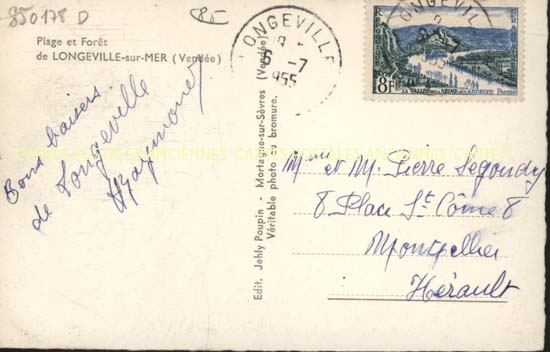 850178 D
85
Plage et Forêt
de LONGEVILLE-sur-MER (Vendée)
Bons baisers
de Longeville
Edit. Jehly Poupin - Mortagne-sur-Sèvres (Vendée)
Véritable photo au bromure.
LONGEVILLE
6 -7
1955
8F
LA VALLÉE DE LA SEINE AUX ANDELYS
CARTES POSTALES ANCIENNES CARTES POSTALES ANCIENNES CARTES
Mme et M. Pierre Segondy
8 Place St Côme 8
Montpellier
Hérault